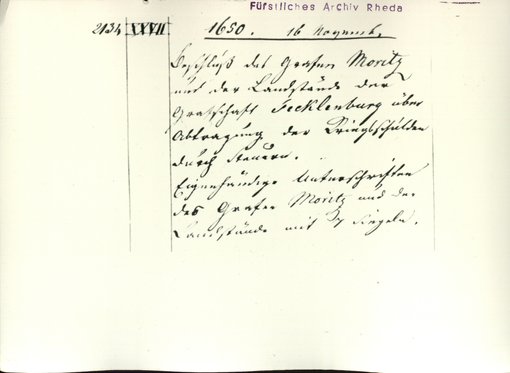 Fürstliches Archiv Rheda
2134 XXVII 1650. 16 Novemb.
Beschluß des Grafen Moritz
und der Landstände der
Grafschaft Tecklenburg über
Abtragung der Kriegsschulden
durch Steuern.
Eigenhändige Unterschriften
des Grafen Moritz und der
Landstände mit Siegeln.